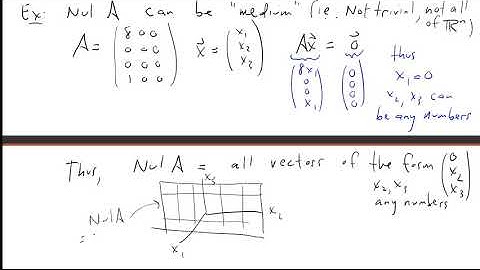 Ex: Nul A can be "medium" (ie. Not trivial, not all of ℝⁿ)
A = (8 0 0
0 0 0
0 0 0
1 0 0)
x⃗ = (x₁
x₂
x₃)
Ax⃗ = 0⃗
(8x₁
0
0
x₁)
(0
0
0
0)
thus
x₁ = 0
x₂, x₃ can
be any numbers
Thus, Nul A = all vectors of the form (0
x₂
x₃)
x₂, x₃
any numbers
x₃
Nul A
x₂
x₁